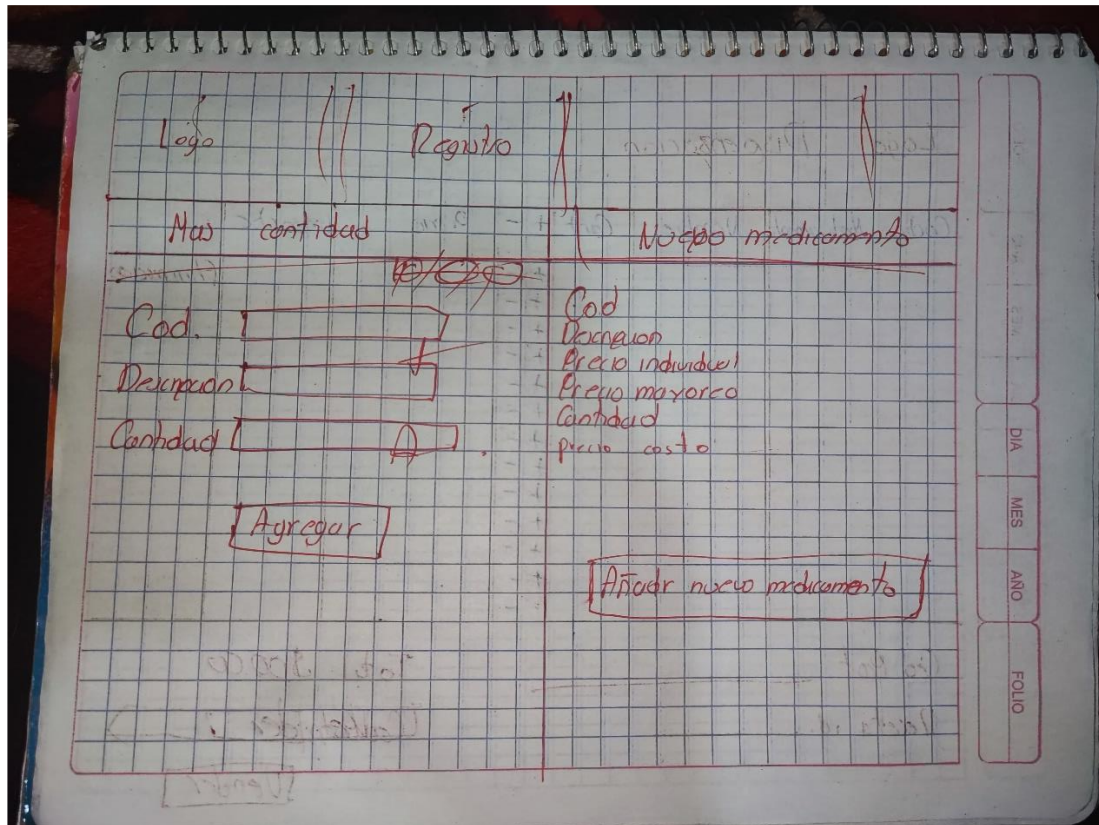 Logo
Registro
Mas cantidad
Nuevo medicamento
Cod.
Descripcion
Cantidad
Agregar
Cod
Descripcion
Precio individual
Precio mayoreo
Cantidad
precio costo
Añadir nuevo medicamento
DIA
MES
AÑO
FOLIO